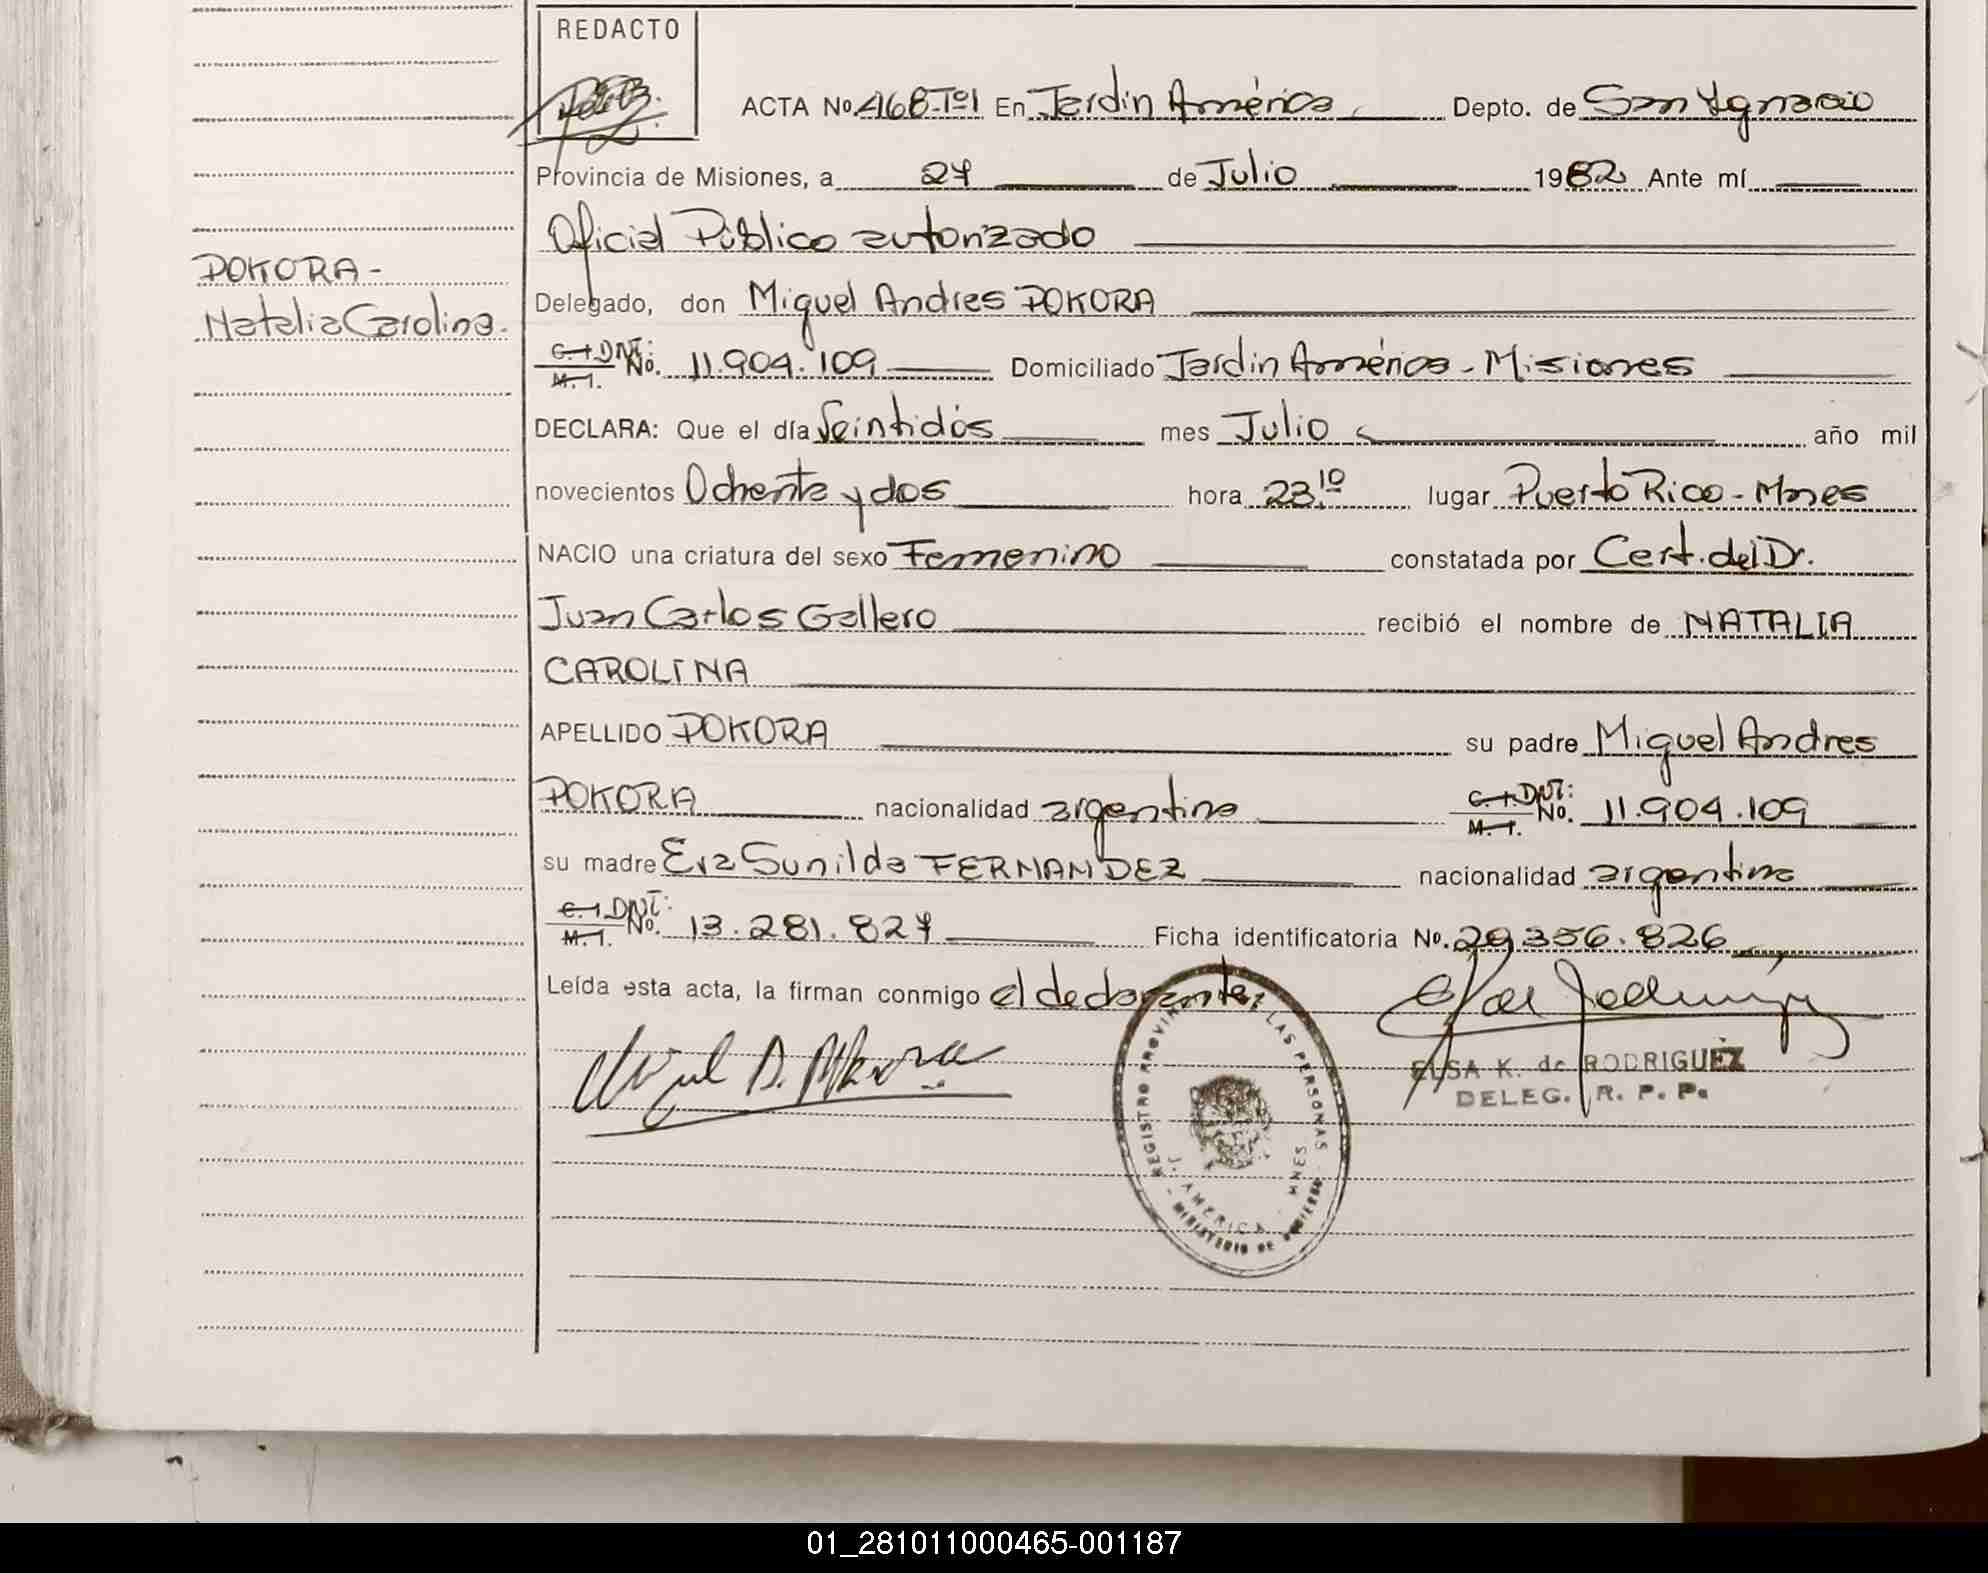 REDACTO
ACTA No. 468-Tº1 En Jardín América Depto. de San Ygnacio
Provincia de Misiones, a 27 de Julio 1982 Ante mí
Oficial Público autorizado
POKORA-
Natalia Carolina.
Delegado, don Miguel Andres POKORA
C. I. DNI: M. I. No. 11.904.109 Domiciliado Jardín América - Misiones
DECLARA: Que el día Veintidós mes Julio año mil
novecientos Ochenta y dos hora 23.10 lugar Puerto Rico - Mnes
NACIO una criatura del sexo Femenino constatada por Cert. del Dr.
Juan Carlos Gallero recibió el nombre de NATALIA
CAROLINA
APELLIDO POKORA su padre Miguel Andres
POKORA nacionalidad argentina C. I. DNI: M. I. No. 11.904.109
su madre Eva Sunilda FERNANDEZ nacionalidad argentina
C. I. DNI: M. I. No. 13.281.827 Ficha identificatoria No. 29.356.826
Leída esta acta, la firman conmigo el declarante,
ELSA K. de RODRIGUEZ
DELEG. R. P. P.
REGISTRO PROVINCIAL DE LAS PERSONAS
J. AMERICA - MNES
MINISTERIO DE GOBIERNO
01_281011000465-001187